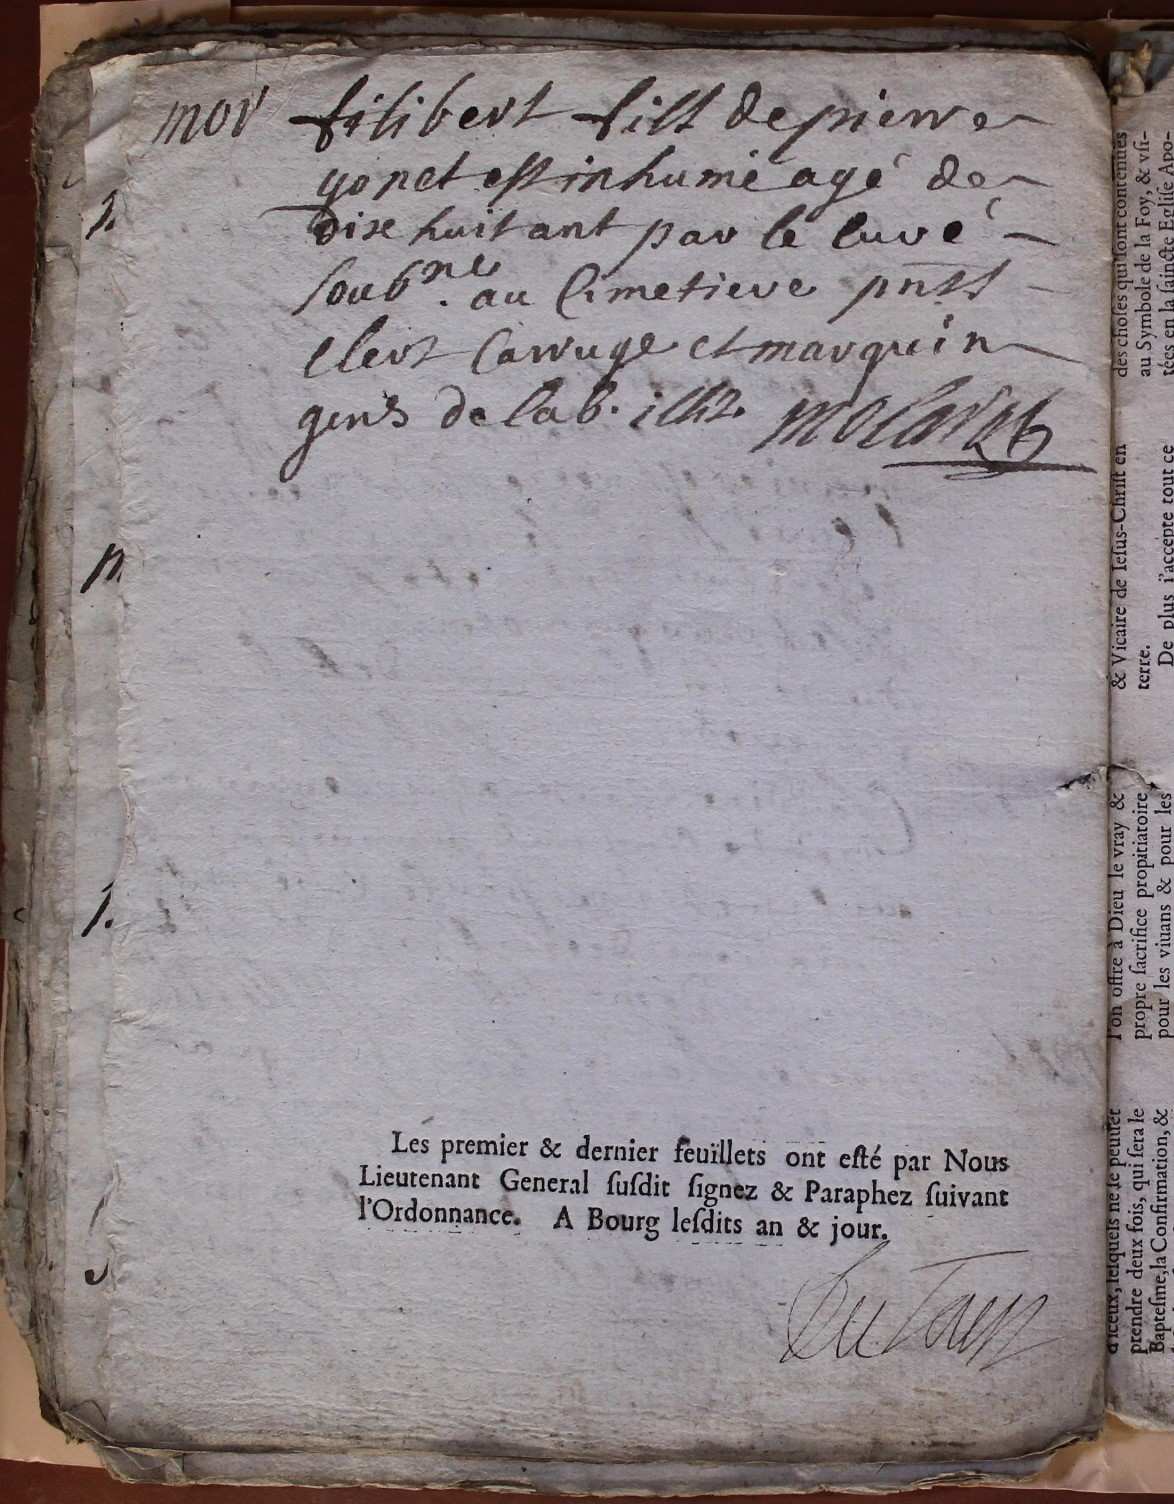 mor filibert fills de pierre
gonet est inhumé agé de
dise huit ant par le curé
soub.né au Cimetiere pnts
clert Carruge et marguin
gens de lab. illit.
Les premier & dernier feuillets ont esté par Nous
Lieutenant General susdit signez & Paraphez suivant
l'Ordonnance. A Bourg lesdits an & jour.
des choses qui sont contenuës
au Symbole de la Foy, & vsi-
tées en la saincte Eglise Apo-
& Vicaire de Iesus-Christ en
terre.
De plus i'accepte tout ce
l'on offre à Dieu le vray &
propre sacrifice propitiatoire
pour les viuans & pour les
d'iceux, lesquels ne se peuuet
prendre deux fois, qui sera le
Baptesme, la Confirmation, &